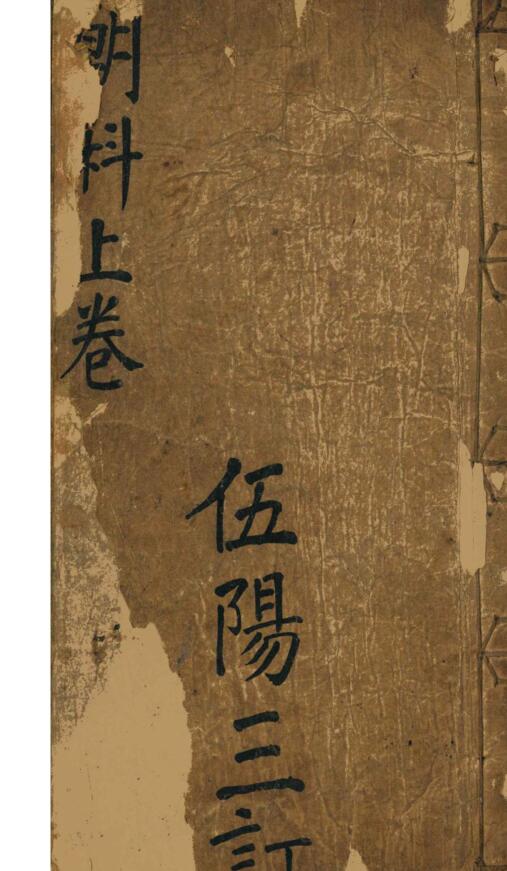 明科上卷
伍陽三訂